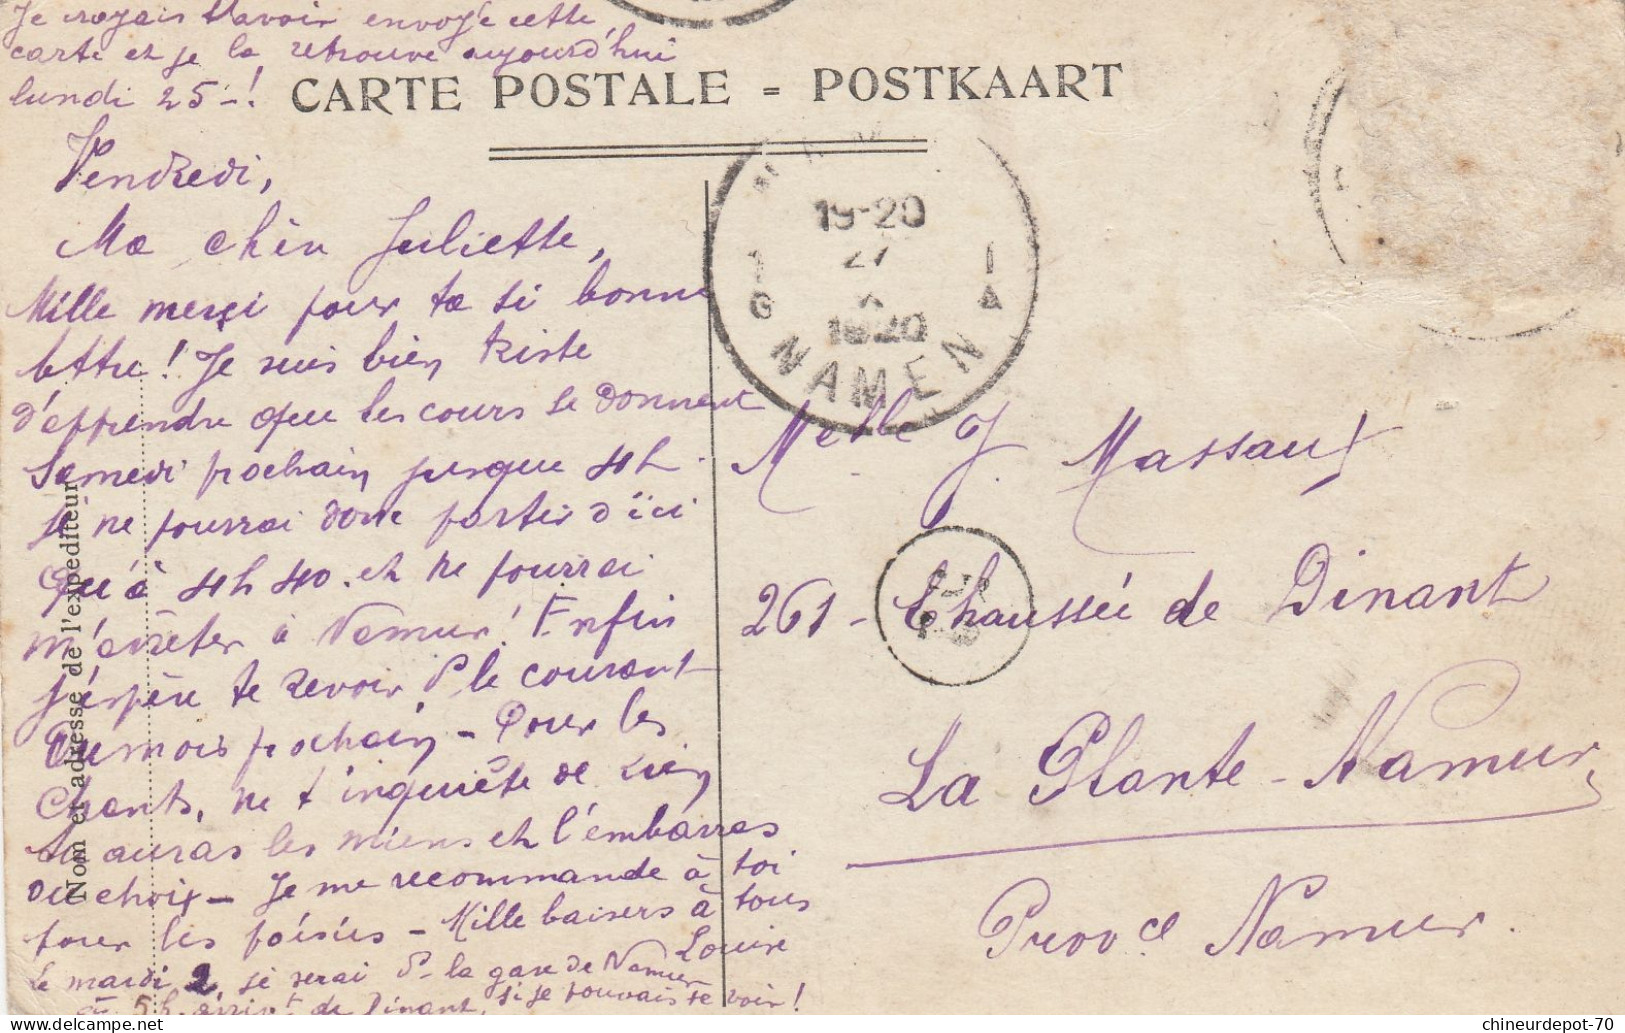 Je croyais t'avoir envoyé cette
carte et je la retrouve aujourd'hui
lundi 25-!
CARTE POSTALE = POSTKAART
Vendredi,
Ma chère Juliette,
Mille merci pour ta si bonne
lettre! Je suis bien triste
d'apprendre que les cours se donnent
Samedi prochain jusque 4h.
je ne pourrai donc partir d'ici
qu'à 4h40. et ne pourrai
m'arrêter à Namur! Enfin
j'espère te revoir ds le courant
du mois prochain - Pour les
chants, ne t'inquiète de rien
tu auras les miens et l'embarras
du choix - Je me recommande à toi
pour les poésies - Mille baisers à tous
Louise
Le mardi 2, je serai ds la gare de Namur
à 5h. arrivt de Dinant, si je pouvais te voir!
Nom et adresse de l'expéditeur
19-20
27
1920
1 1
G A
NAMEN
Melle J. Massaux
261 - Chaussée de Dinant
La Plante - Namur
Provce Namur.
chineurdepot-70